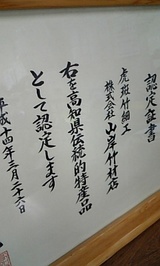 認定証書
虎斑竹細工
株式会社 山岸竹材店
右を高知県伝統的特産品
として認定します
平成十四年三月二十六日